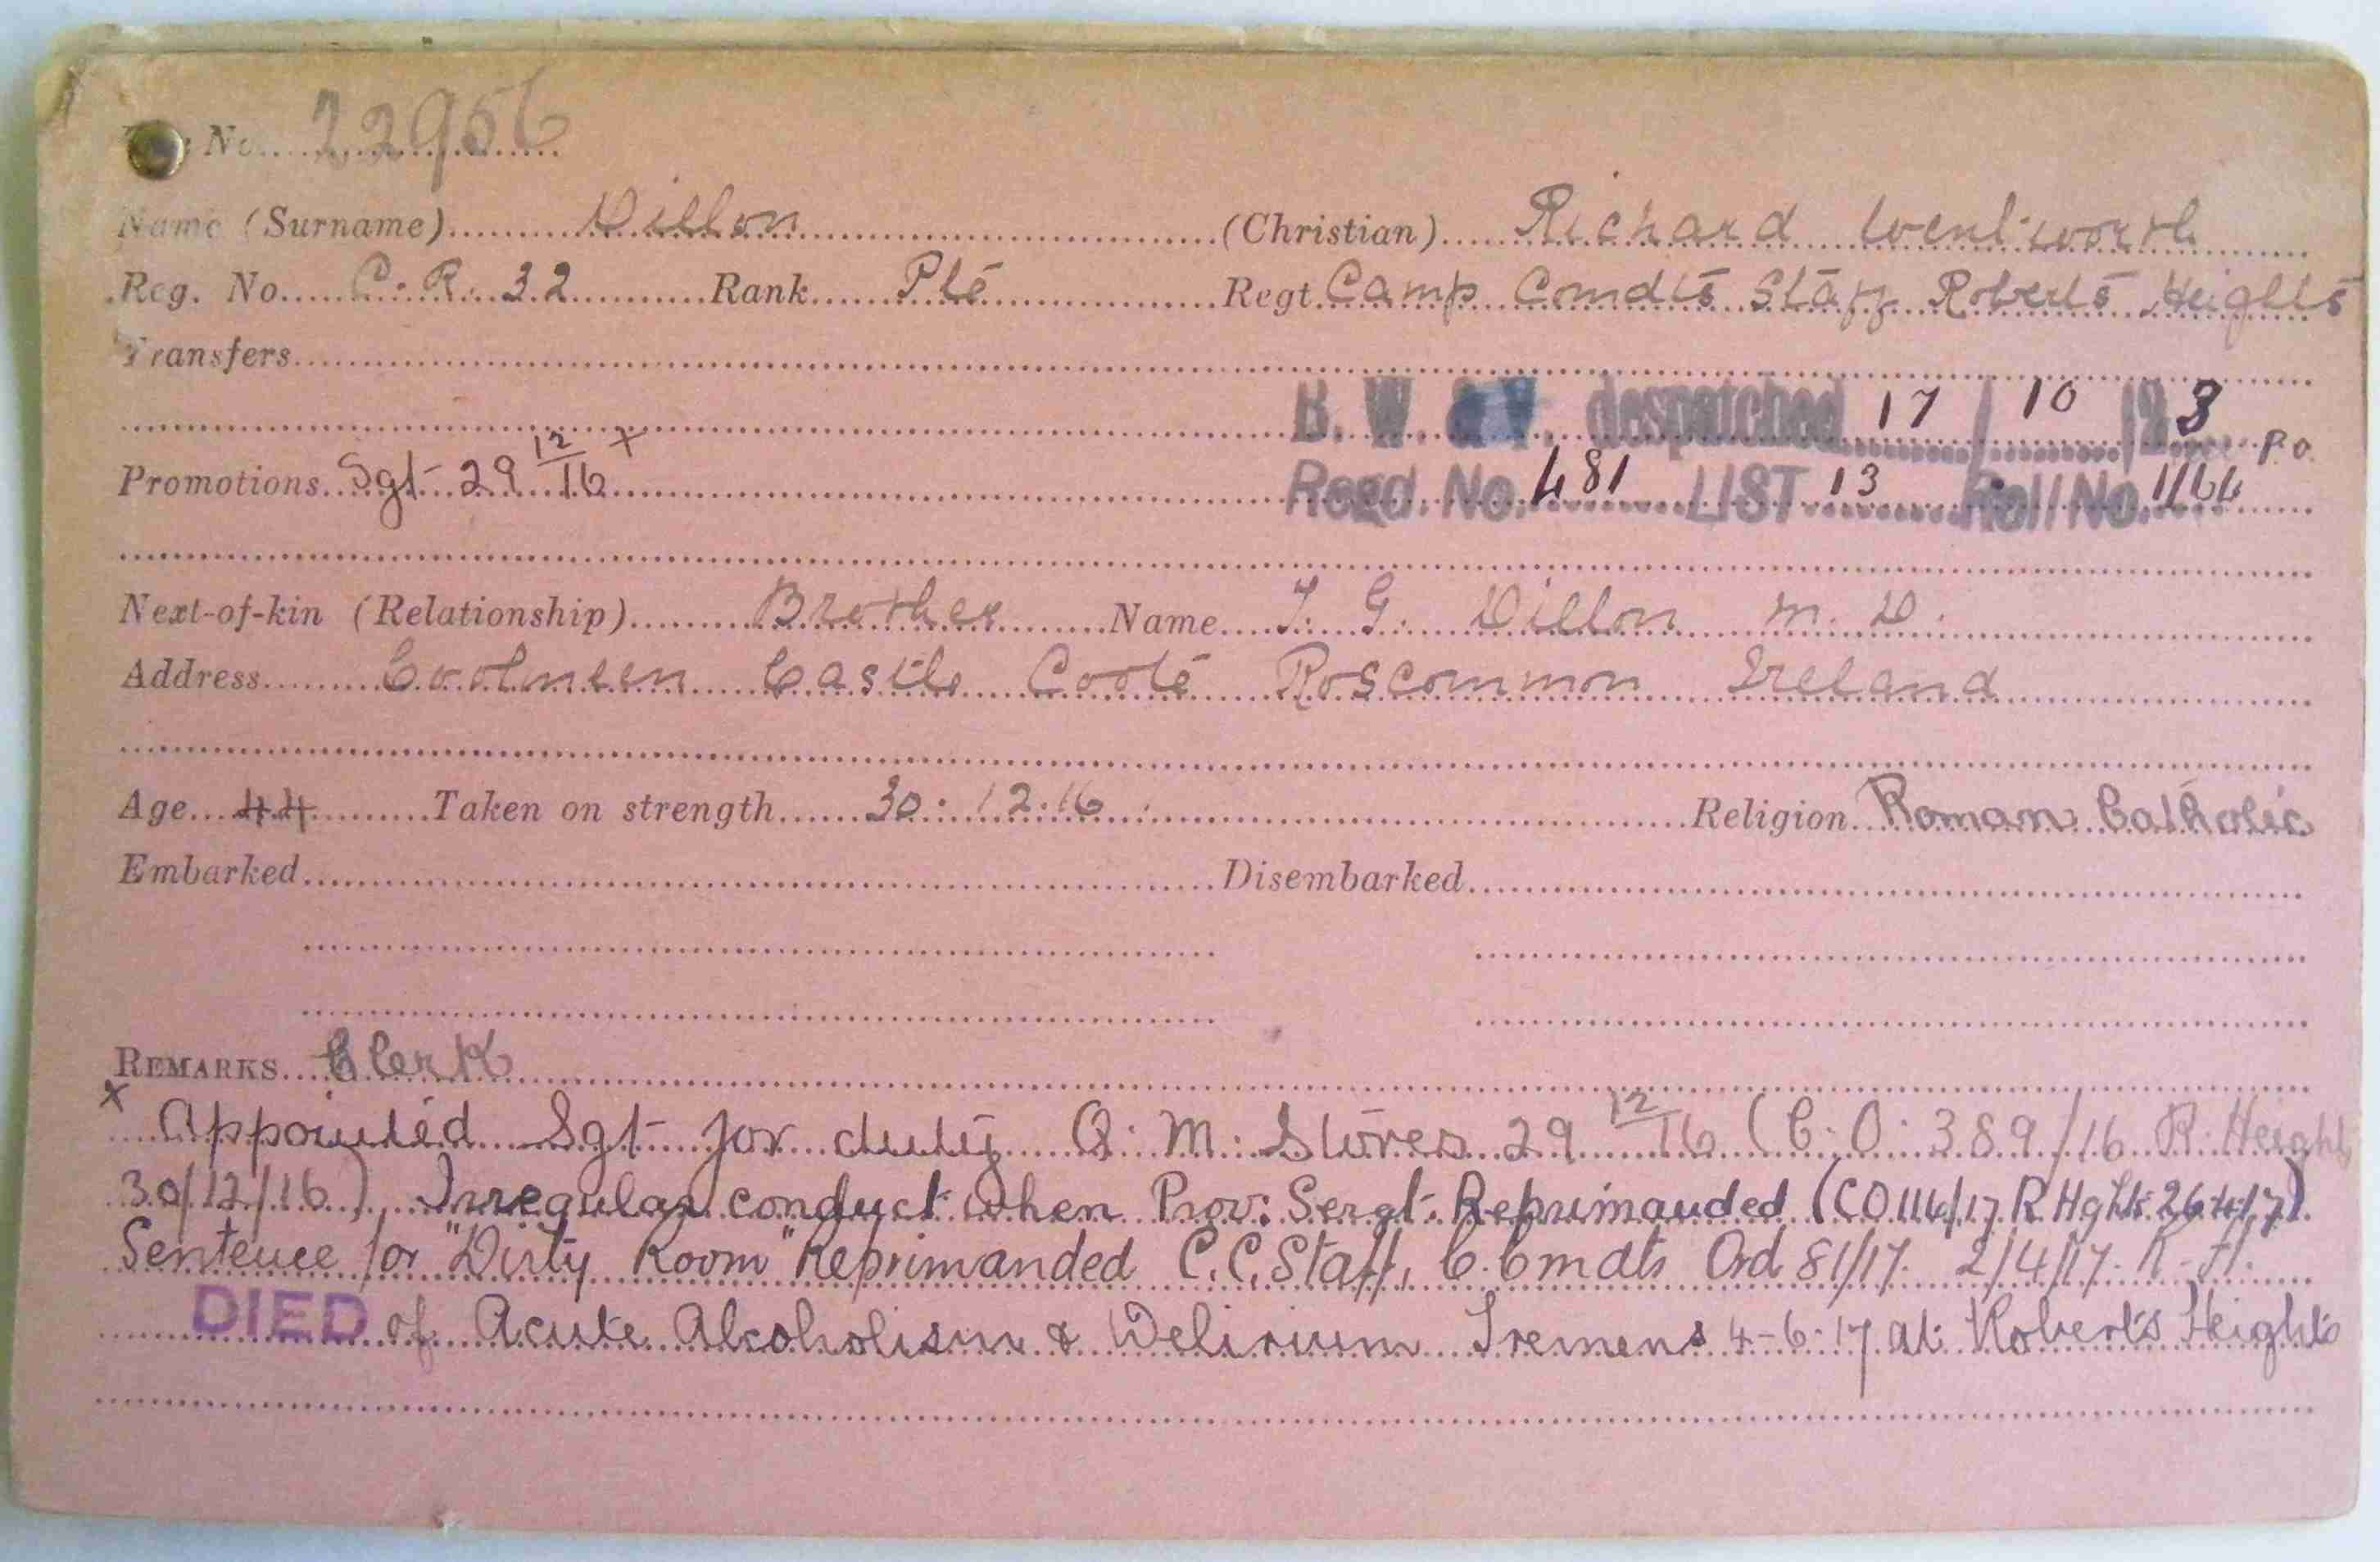 No. 22956
Name (Surname) Dillon (Christian) Richard Wentworth
Reg. No. C. R. 32 Rank Pte Regt Camp Comdts Staff Roberts Heights
Transfers
B. W. despatched 17/10/23 P.O.
Promotions Sgt 29 12/16 x
Regd. No. 481 LIST 13 Roll No. 1/66
Next-of-kin (Relationship) Brother Name T. G. Dillon M. D.
Address Coolmeen Castle Coote Roscommon Ireland
Age 44 Taken on strength 30. 12. 16. Religion Roman Catholic
Embarked Disembarked
REMARKS Clerk
x Appointed Sgt for duty Q. M. Stores 29 12/16 (C. O. 389/16 R. Heights
30/12/16) Irregular conduct when Prov: Sergt. Reprimanded (CO 114/17 R Hghts 26.4.17)
Sentence for "Dirty Room" Reprimanded C. C. Staff, C. Cmdts Ord 81/17. 2/4/17. R. H.
DIED of Acute Alcoholism & Delirium Tremens 4-6-17 at Roberts Heights